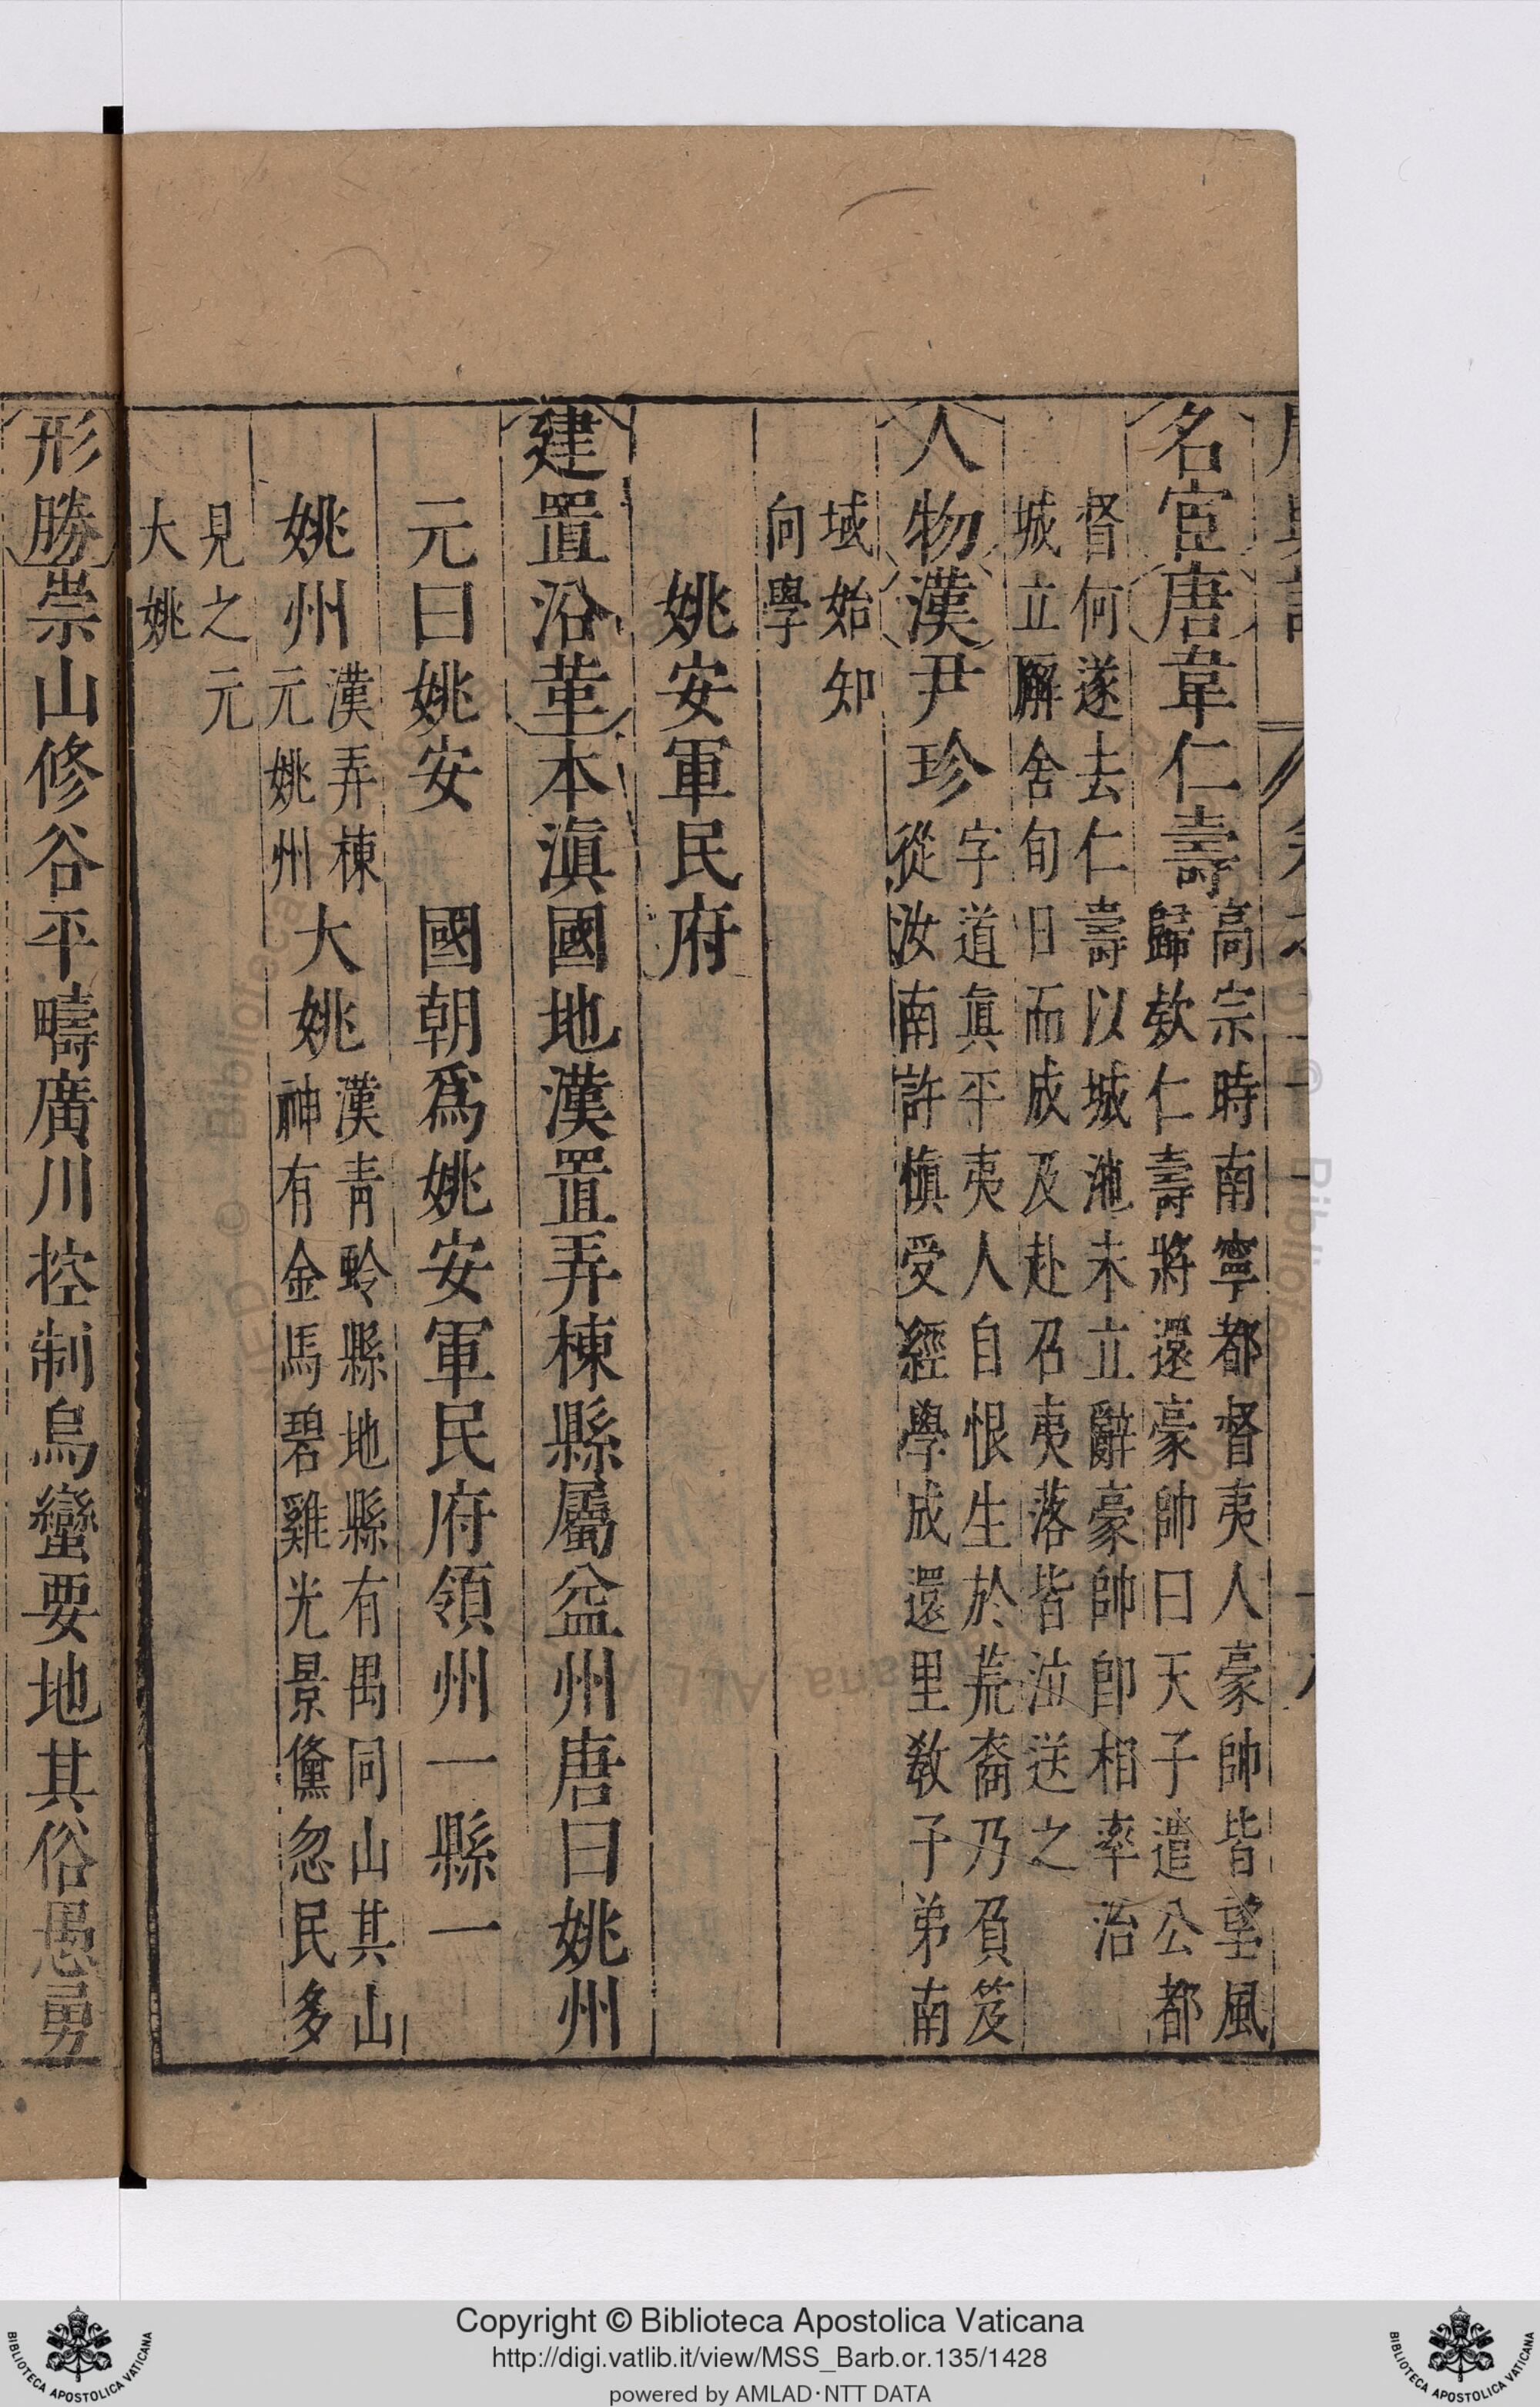 名宦唐韋仁壽高宗時南寧都督夷人豪帥皆望風
歸欵仁壽將還豪帥曰天子遣公都
督何遂去仁壽以城池未立辭豪帥卽相率治
城立廨舍旬日而成及赴召夷落皆泣送之
人物漢尹珍字道眞平夷人自恨生於荒裔乃負笈
從汝南許愼受經學成還里敎子弟南
域始知
向學
姚安軍民府
建置沿革本滇國地漢置弄棟縣屬益州唐曰姚州
元曰姚安 國朝爲姚安軍民府領州一縣一
姚州漢弄棟
元姚州
大姚漢青蛉縣地縣有禺同山其山
神有金馬碧雞光景儵忽民多
見之元
大姚
形勝崇山修谷平疇廣川控制烏蠻要地其俗愚勇
Copyright © Biblioteca Apostolica Vaticana
http://digi.vatlib.it/view/MSS_Barb.or.135/1428
powered by AMLAD·NTT DATA
BIBLIOTECA APOSTOLICA VATICANA
BIBLIOTECA APOSTOLICA VATICANA